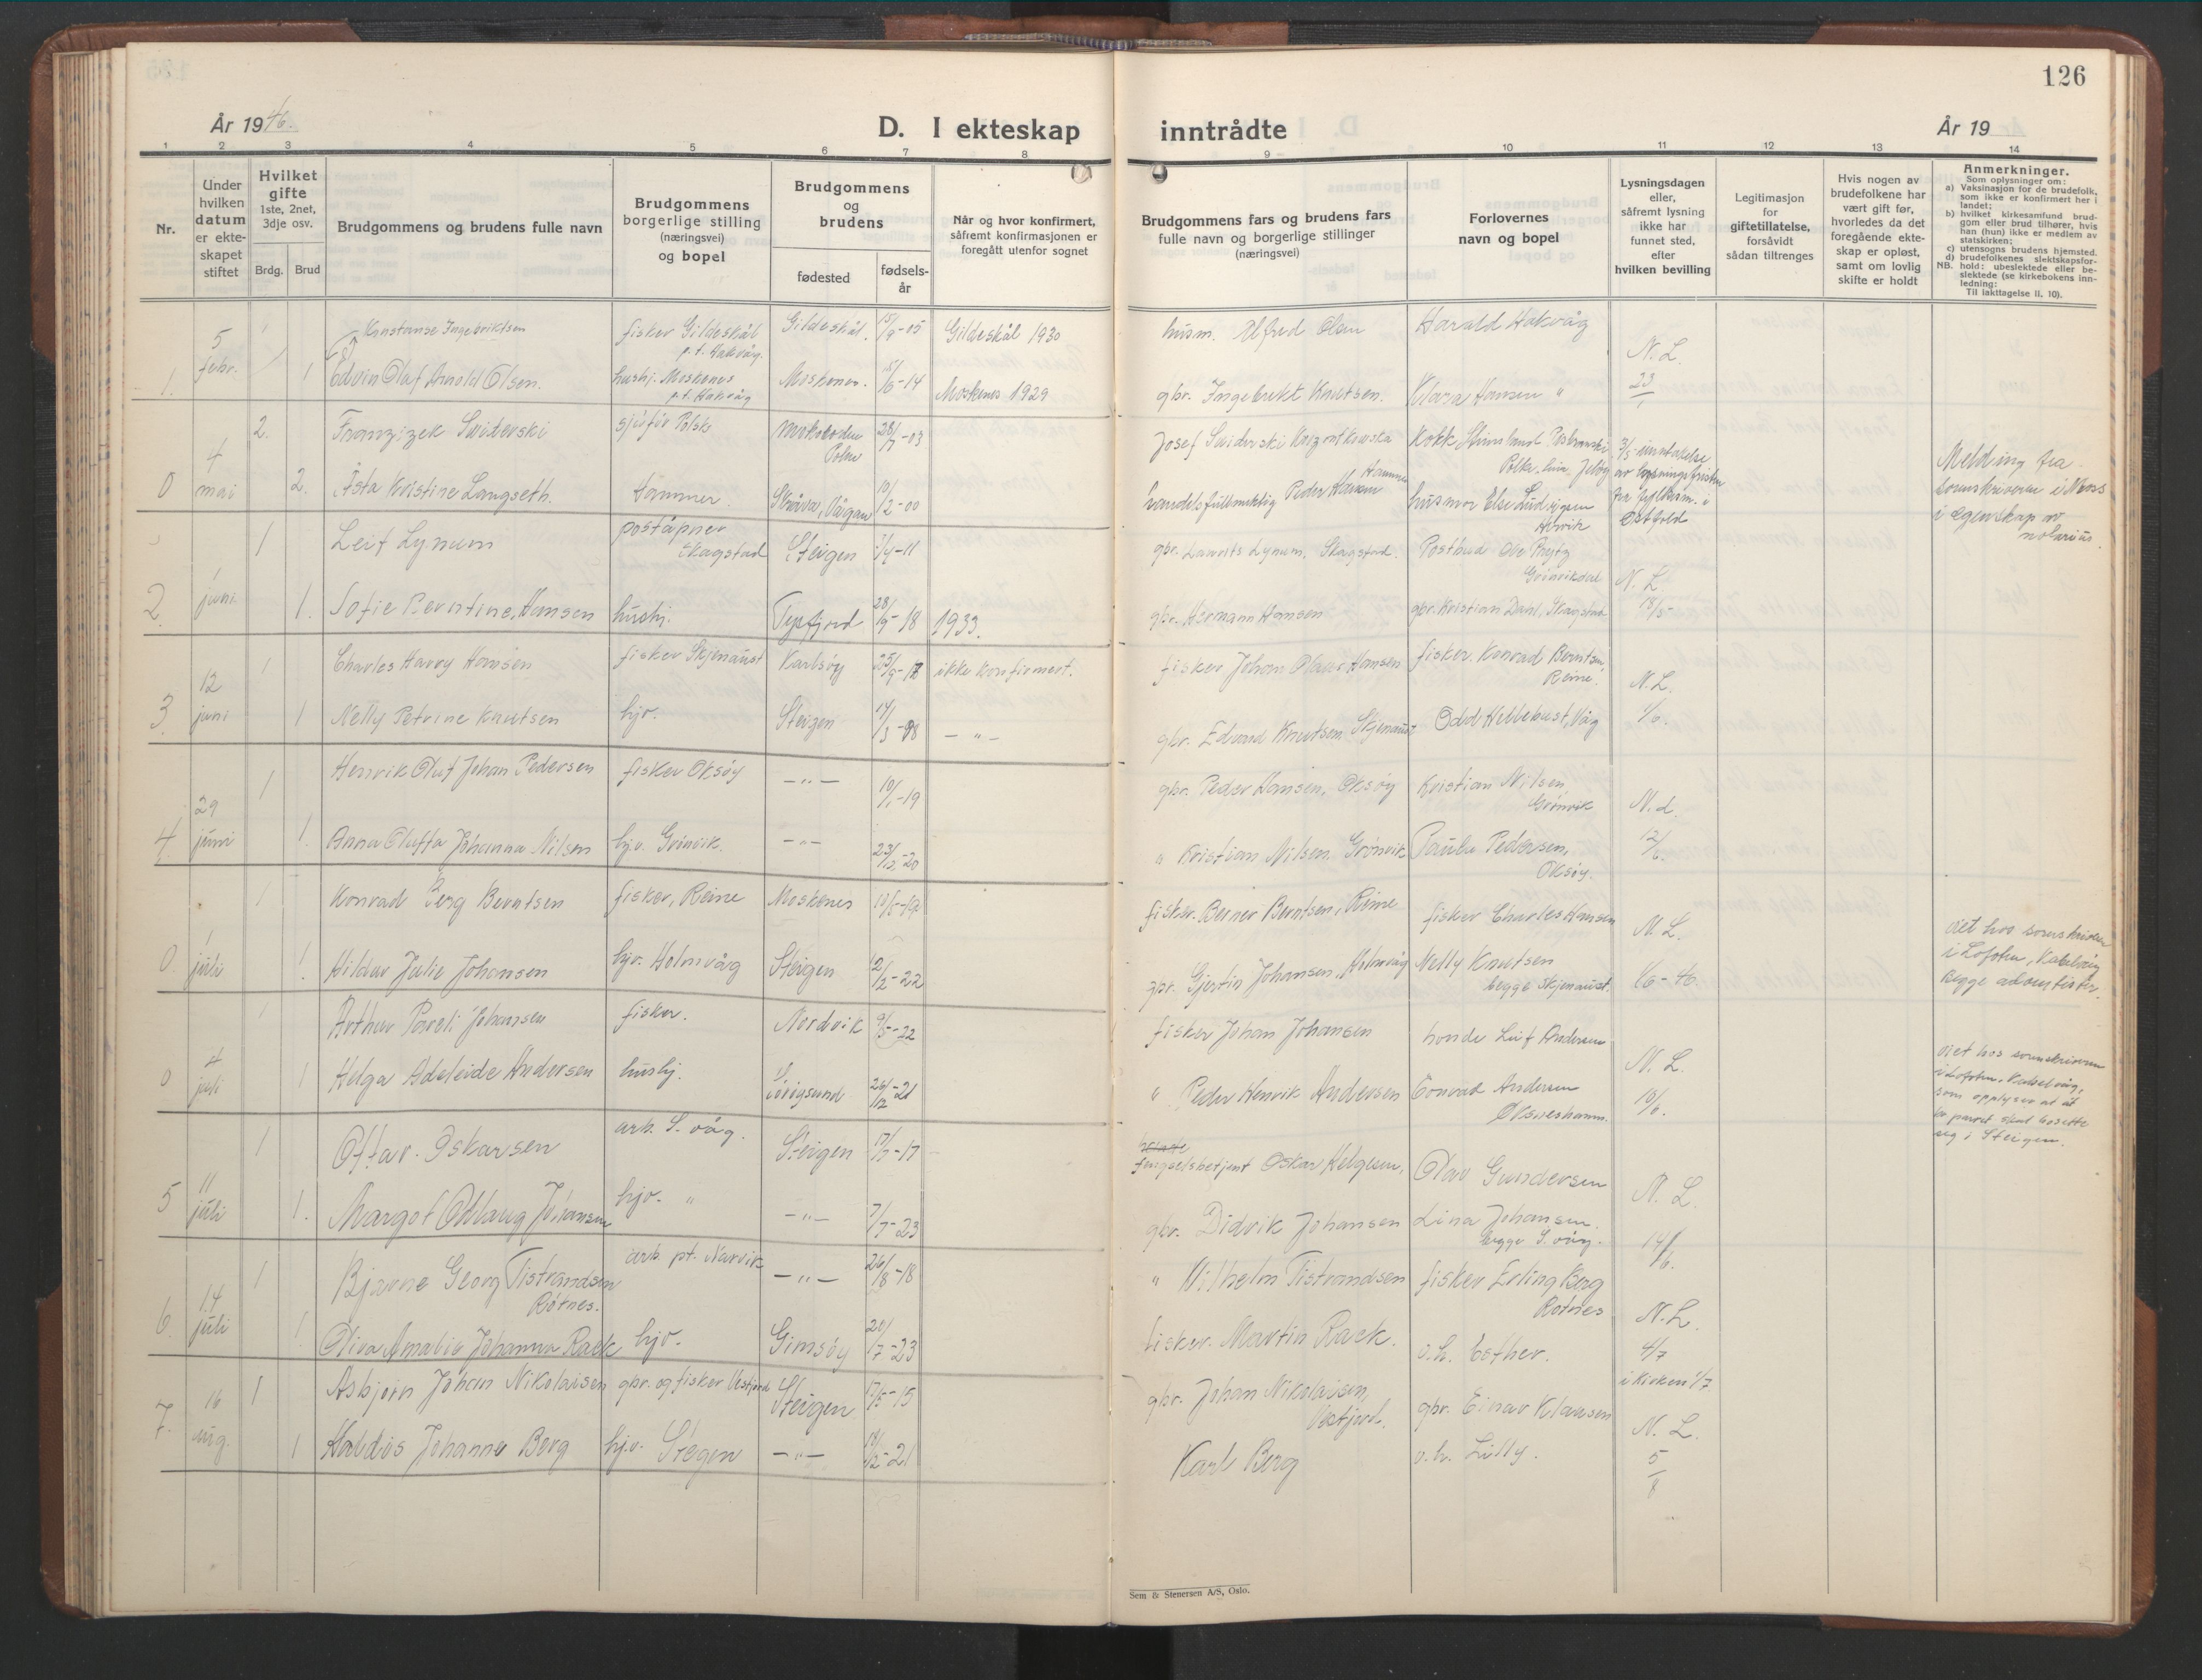 126
År 1946.
D. I ekteskap
inntrådte
År 19
1 2 3 4 5 6 7 8 9 10 11 12 13 14
Nr.
Under hvilken datum er ekteskapet stiftet
Hvilket gifte
1ste, 2net, 3dje osv.
Brdg. Brud
Brudgommens og brudens fulle navn
Brudgommens borgerlige stilling (næringsvei) og bopel
Brudgommens og brudens
fødested
fødselsår
Når og hvor konfirmert, såfremt konfirmasjonen er foregått utenfor sognet
Brudgommens fars og brudens fars fulle navn og borgerlige stillinger (næringsvei)
Forlovernes navn og bopel
Lysningsdagen eller, såfremt lysning ikke har funnet sted, efter hvilken bevilling
Legitimasjon for giftetillatelse, forsåvidt sådan tiltrenges
Hvis nogen av brudefolkene har vært gift før, hvorledes da det foregående ekteskap er opløst, samt om lovlig skifte er holdt
Anmerkninger.
Som oplysninger om:
a) Vaksinasjon for de brudefolk, som ikke er konfirmert her i landet;
b) hvilket kirkesamfund brudgom eller brud tilhører, hvis han (hun) ikke er medlem av statskirken;
c) utensogns brudens hjemsted.
d) brudefolkenes slektskapsforhold: ubeslektede eller beslektede (se kirkebokens innledning:
NB.
Til Iakttagelse II, 10).
5 febr. 1 Konstanse Ingebriktsen fisker Gildeskål p.t. Hakvåg. Gildeskål. 15/9-05 Gildeskål 1930 husm. Alfred Olsen Harald Hakvåg
1. 1 Edvin Olaf Arnold Olsen. hushj. Moskenes p.t. Hakvåg Moskenes. 15/6-14 Moskenes 1929 gbr. Ingebrikt Knutsen. Klara Hansen " N. L. 23/1
4 mai 2. Franzizek Swiderski sjåfør Polsk Polen 28/7-03 Josef Swiderski
0 2. Åsta Kristine Langseth. Hammer Skråva, Vågan 10/2-00 handelsfullmektig Peder Hansen Hammer husmor Else Ludvigsen
3/5 inntakelse av lysningsfristen fra fylkesm. i Østfold
Melding fra sorenskriveren i Moss i egenskap av notarius.
1 juni 1 Leif Lynum poståpner Skagstad Steigen 1/4-11 gbr. Laurits Lynum, Skagstad. Postbud Ole Prytz Grönvikdal
2. 1. Sofie Berntine, Hansen hushj. Tysfjord 28/9-18 1933. gbr. Hermann Hansen gbr. Kristian Dahl, Skagstad N. L. 18/5
12 juni 1 Charles Harry Hansen fisker Skjenaust Karlsøy 25/9-17 ikke konfirmert. fisker Johan Olaus Hansen fisker. Konrad Berntsen, Reine.
3. 1 Nelly Petrine Knutsen hjv. Steigen 14/3-08 — " — gbr. Edvard Knutsen, Skjenaust Odd Hellebust, Våg N.L. 1/6.
29 juni 1 Henrik Oluf Johan Pedersen fisker Oksöy — " — 10/1-19 gbr. Peder Hansen, Oksöy Kristian Nilsen, Grönvik
4. 1. Anna Oluffa Johanna Nilsen hjv. Grönvik. — " — 23/12-20 " Kristian Nilsen Grönvik Paula Pedersen, Oksöy. N.L. 12/6.
1 juli 1 Konrad Berg Berntsen fisker, Reine Moskenes fisker. Berner Berntsen, Reine fisker Charles Hansen
0. 1. Hildur Julie Johansen hjv. Holmvåg Steigen 12/2-22 gbr. Gjertin Johansen, Holmvåg Nelly Knutsen begge Skjenaust. N.L. 1/6-46.
viet hos sorenskriver i Lofoten, Kabelvåg Begge adventister.
4 juli 1 Arthur Pareli Johansen fisker. Nordvik 9/5-22 fisker Johan Johansen bonde Leif Andersen
0 1 Helga Adeleide Andersen hushj. 26/12-21 " Peder Henrik Andersen Conrad Andersen Oksneshamn. N. L. 18/6.
viet hos sorenskriveren i Lofoten, Kabelvåg, som opplyser at paret skal bosette seg i Steigen.
11 juli 1 Ottar Oskarsen arb. S. våg. Steigen 17/7-17 fengselsbetjent Oskar Helgesen, Olav Gundersen
5 1. Margot Oddlaug Johansen hjv. " — " — 7/7-23 gbr. Didrik Johansen Lina Johansen. begge S. våg. N. L. 14/6.
14 juli 1 Bjarne Georg Tistrandsen Rötnes. arb. pt. Narvik — " — 26/8-18 " Vilhelm Tistrandsen fisker Erling Berg Rotnes
6. 1 Oliva Amalie Johanna Raek hjv. Gimsöy 20/7-23 fisker. Martin Raek. o.h. Esther. N.L. 4/7
16 aug. 1 Asbjørn Johan Nikolaisen gbr. og fisker Vestfjord Steigen 17/5-15 gbr. Johan Nikolaisen, Vestfjord. gbr. Einar Klausen i kirken 1/7.
7. 1 Haldis Johanne Berg hjv. Steigen — " — 18/2-21 Karl Berg o.h. Lilly. N. L. 5/8
Sem & Stenersen A/S, Oslo.